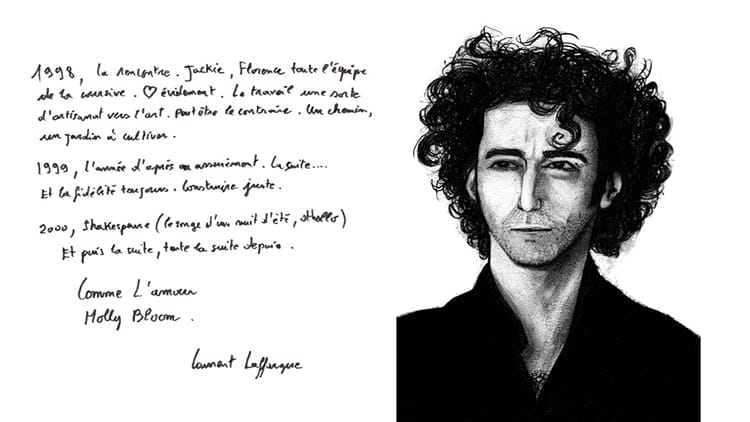 1998, la rencontre. Jackie, Florence toute l'équipe
de la coursive. ♡ évidement. Le travail une sorte
d'artisanat vers l'art. Peut être le contraire. Un chemin,
un jardin à cultiver.
1999, l'année d'après ou assurément. La suite....
Et la fidélité toujours. Construire juste.
2000, Shakespeare (le songe d'un nuit d'été, othello)
Et puis la suite, toute la suite depuis.
Comme L'amour
Molly Bloom.
Laurent Laffargue